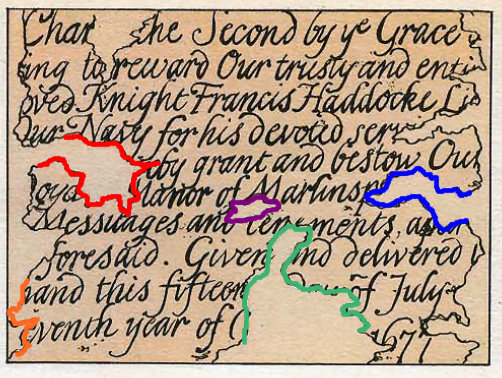 Char he Second by ye Grace
ing to reward Our trusty and enti
oved Knight Francis Haddocke L
Our Navy for his devoted serv
by grant and bestow Our
oya Manor of Marlinsp
Messuages and tenements, a
foresaid. Given and delivered
hand this fifteen Day of July
eventh year of